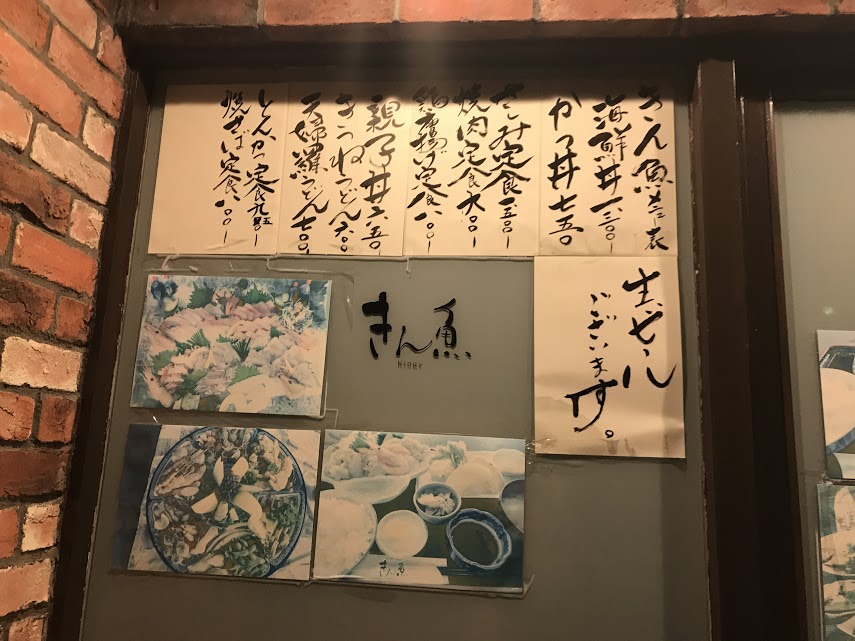 きん魚メニュー表
海鮮丼一、三〇〇ー
かつ丼七五〇
さしみ定食一、五〇〇ー
焼肉定食九〇〇ー
鶏唐揚げ定食八〇〇ー
親子丼六五〇ー
きつねうどん六〇〇ー
天婦羅うどん七〇〇ー
とんかつ定食九五〇ー
焼さば定食八〇〇ー
生ビール
ございます。
きん魚
きん魚